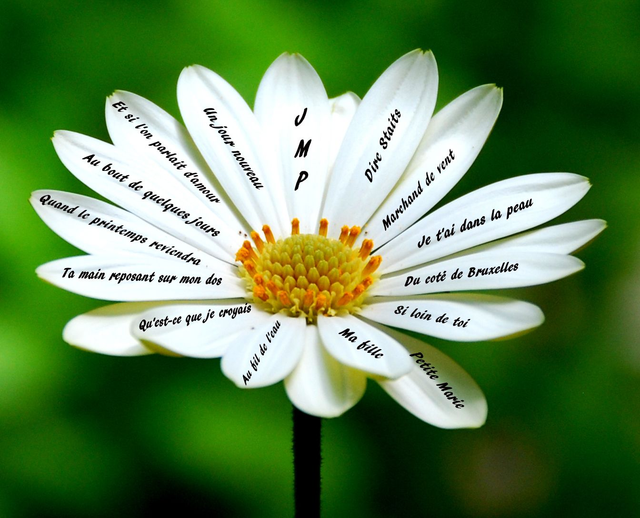 J
M
P
Dire Staits
Marchand de vent
Je t'ai dans la peau
Du coté de Bruxelles
Si loin de toi
Petite Marie
Ma fille
Au fil de l'eau
Qu'est-ce que je croyais
Ta main reposant sur mon dos
Quand le printemps reviendra
Au bout de quelques jours
Et si l'on parlait d'amour
Un jour nouveau